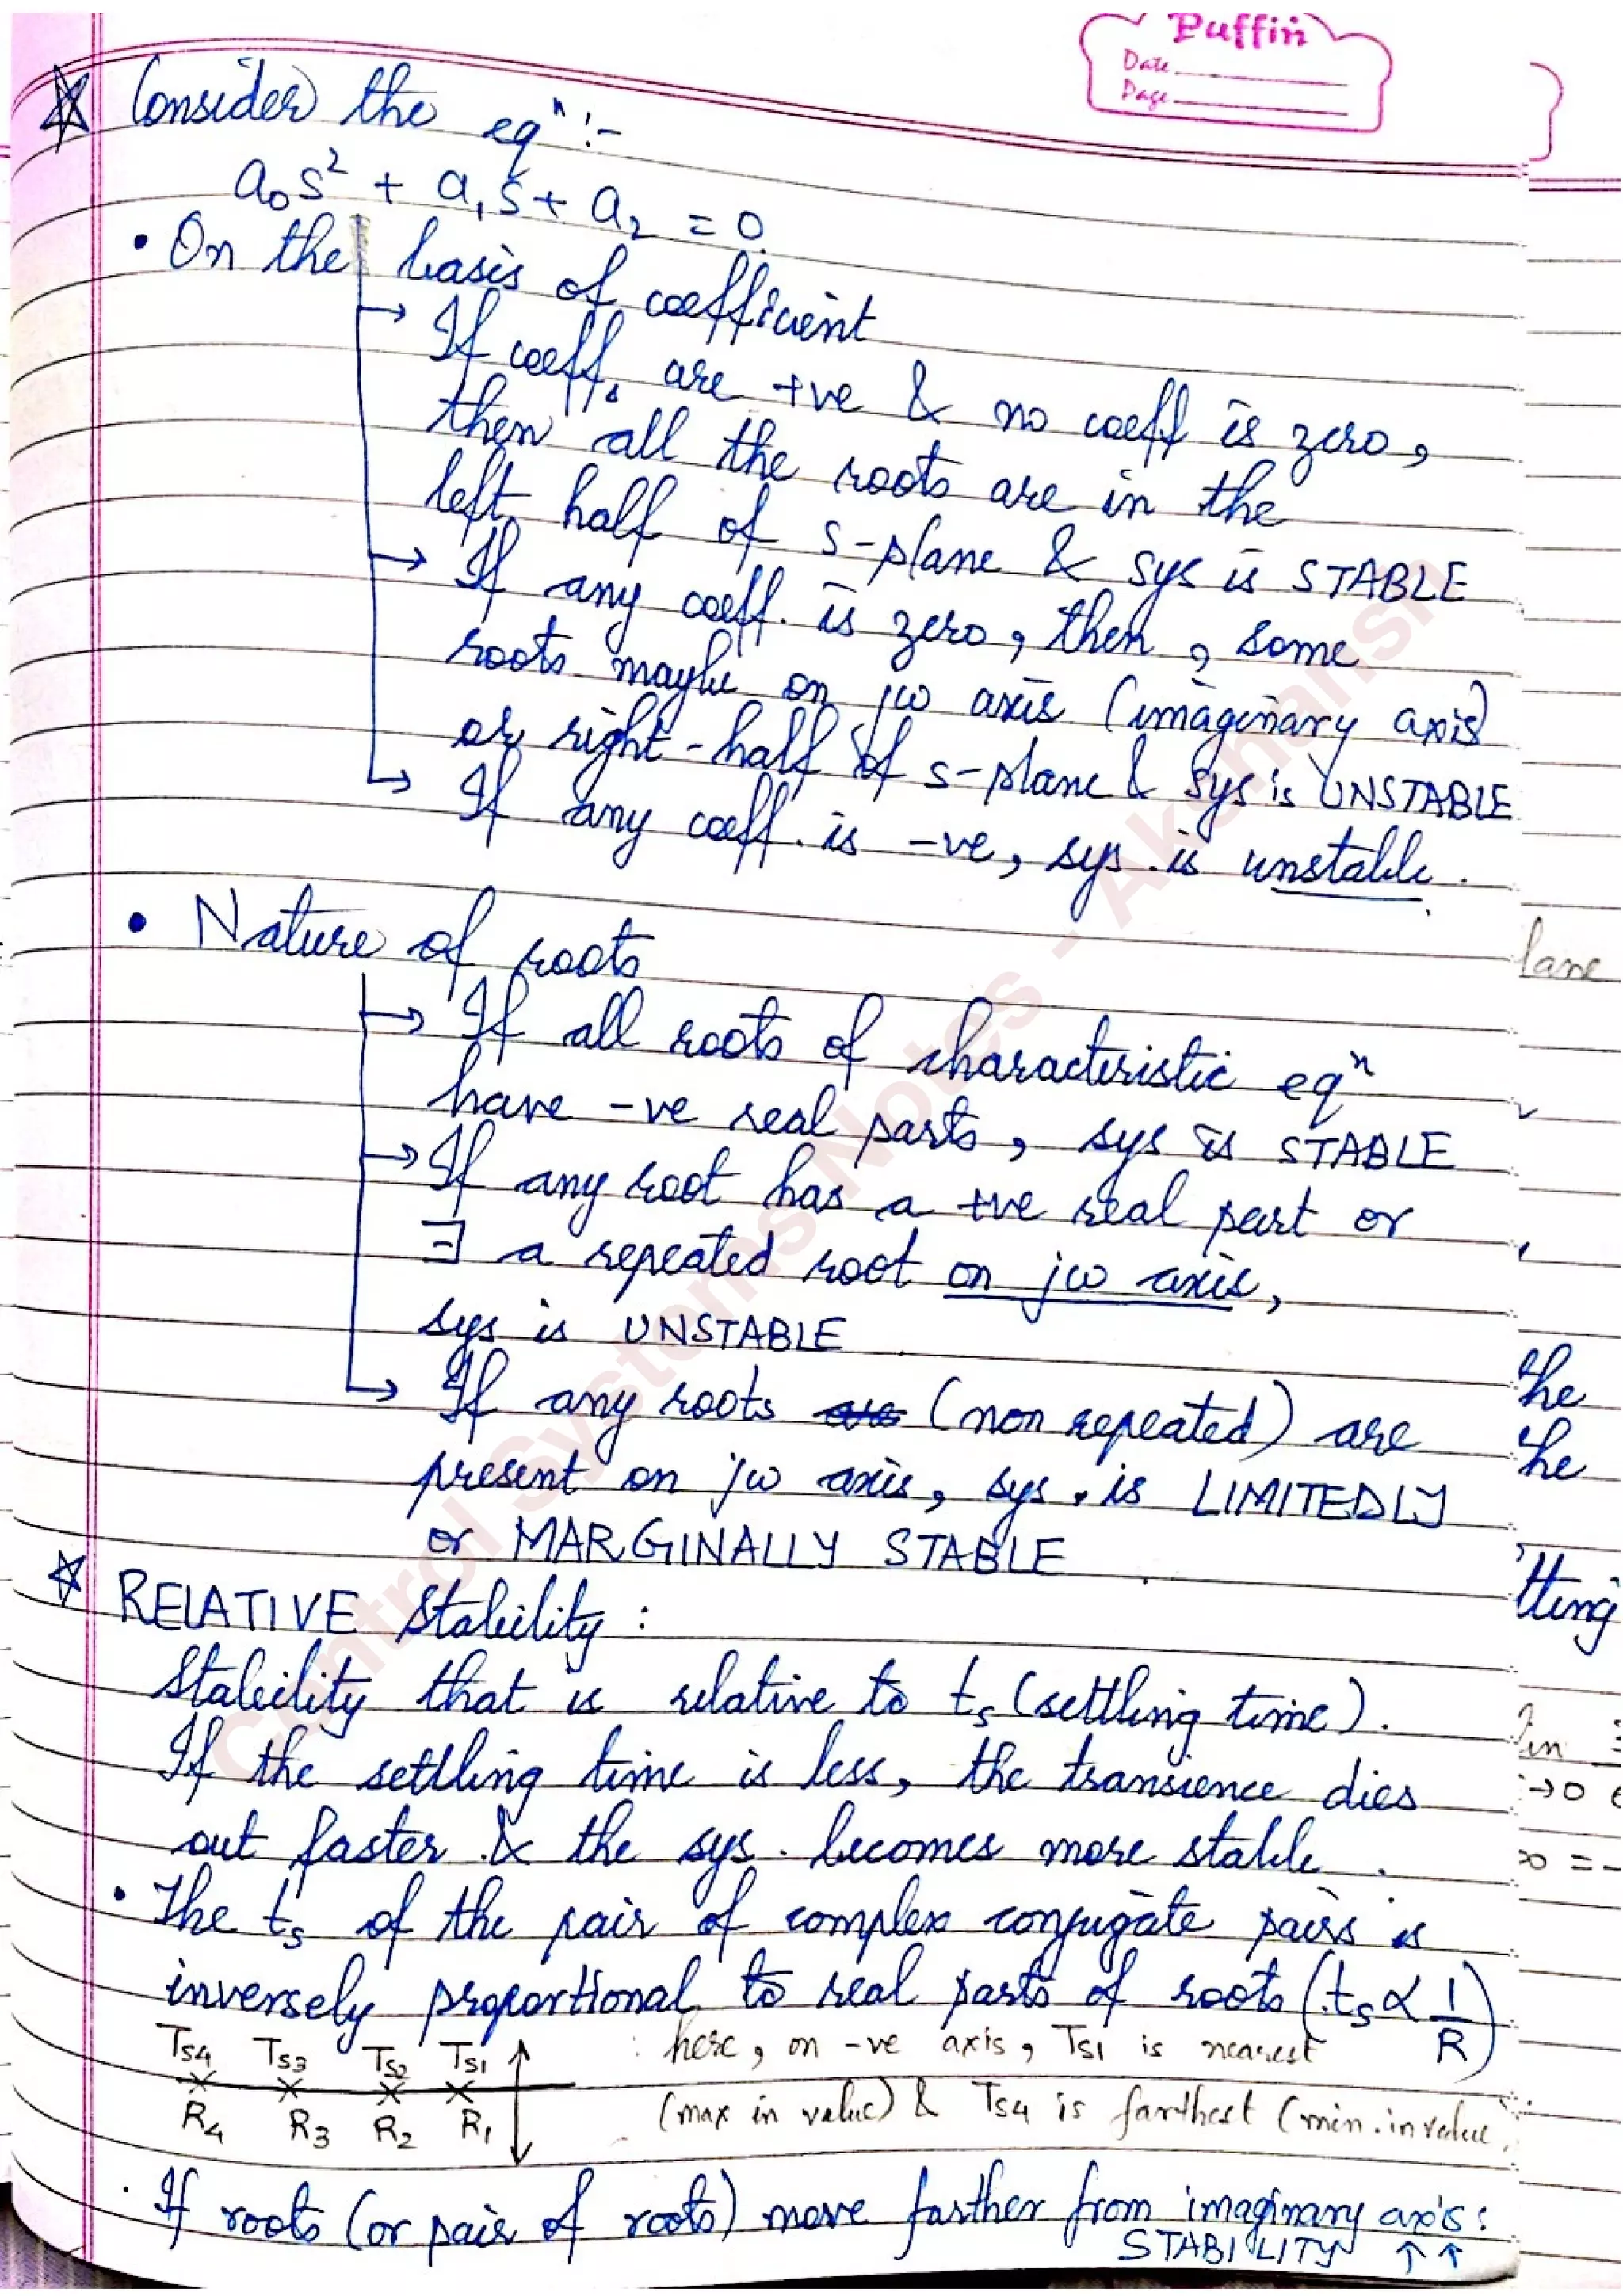 Puffin
Date
Page
Consider the eqⁿ :-
a₀s² + a₁s + a₂ = 0
• On the basis of coefficient
→ If coeff. are +ve & no coeff is zero,
then all the roots are in the
left half of s-plane & sys is STABLE
→ If any coeff. is zero, then, some
roots maybe on jω axis (imaginary axis)
or right-half of s-plane & sys is UNSTABLE
→ If any coeff. is -ve, sys. is unstable.
• Nature of roots
→ If all roots of characteristic eqⁿ
have -ve real parts, sys is STABLE
→ If any root has a +ve real part or
∃ a repeated root on jω axis,
sys is UNSTABLE
→ If any roots (non repeated) are
present on jω axis, sys. is LIMITEDLY
or MARGINALLY STABLE
RELATIVE Stability :
Stability that is relative to ts (settling time).
If the settling time is less, the transience dies
out faster & the sys. becomes more stable.
• The ts of the pair of complex conjugate pairs is
inversely proportional to real parts of roots (ts ∝ 1/R)
Ts4 Ts3 Ts2 Ts1 : here, on -ve axis, Ts1 is nearest
R4 R3 R2 R1 (max in value) & Ts4 is farthest (min. in value
. If roots (or pair of roots) move farther from imaginary axis:
STABILITY ↑↑
lane
he
he
tting
→0
∞ = -
Control Systems Notes - Akshansh